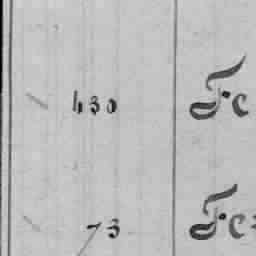 430 Fc
73 Fc